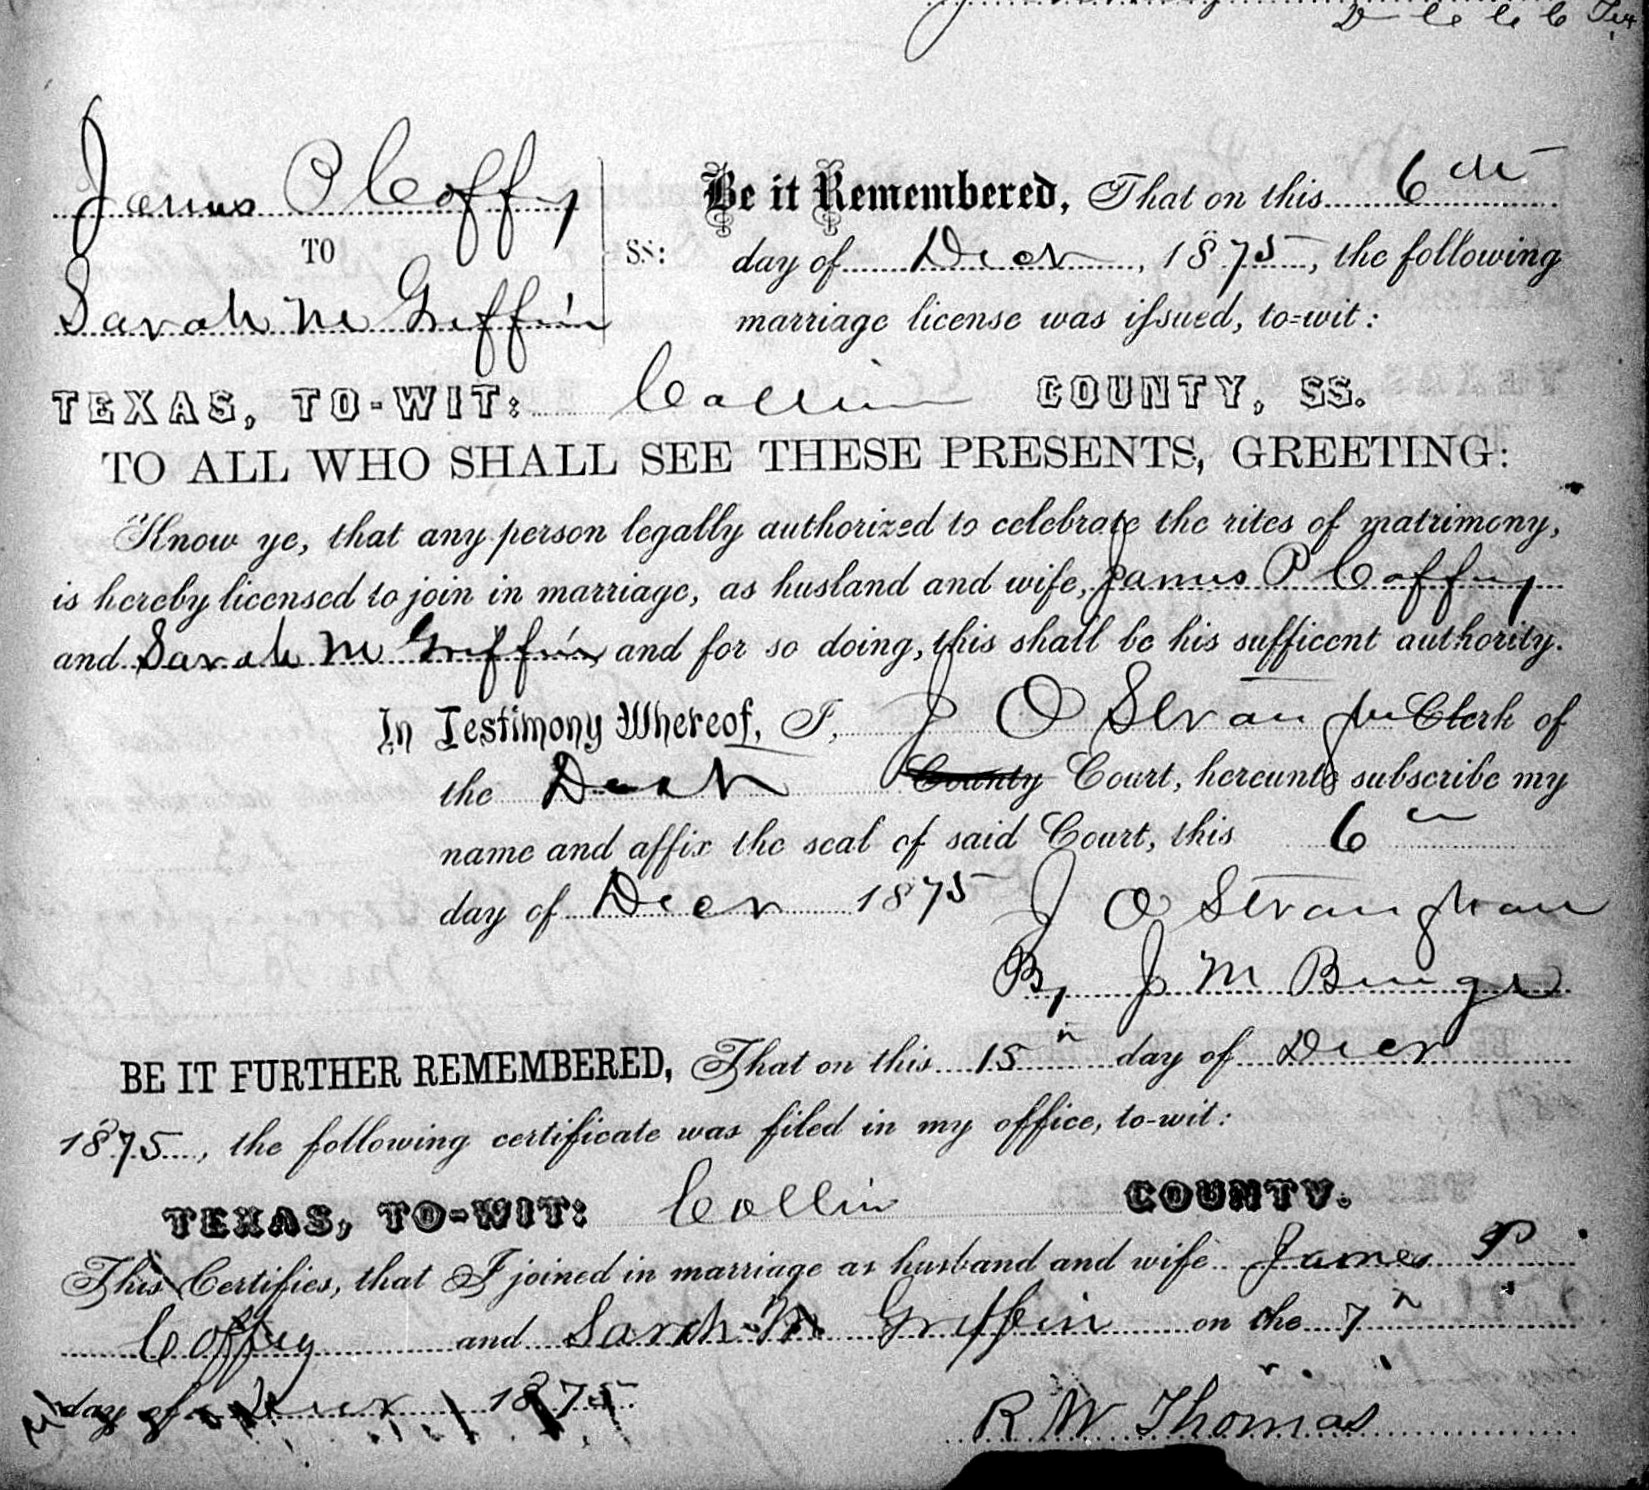 D C C C Tex
James P Coffy
TO
Sarah M Griffin
SS:
Be it Remembered, That on this 6th
day of Decr, 1875, the following
marriage license was issued, to-wit:
TEXAS, TO-WIT: Collin COUNTY, SS.
TO ALL WHO SHALL SEE THESE PRESENTS, GREETING:
Know ye, that any person legally authorized to celebrate the rites of matrimony,
is hereby licensed to join in marriage, as husband and wife, James P Coffey
and Sarah M Griffin and for so doing, this shall be his sufficent authority.
In Testimony Whereof, I, J O Straughn Clerk of
the Dist County Court, hereunto subscribe my
name and affix the seal of said Court, this 6th
day of Decr 1875 J O Straughan
By J M Benge
BE IT FURTHER REMEMBERED, That on this 15th day of Decr
1875, the following certificate was filed in my office, to-wit:
TEXAS, TO-WIT: Collin COUNTY.
This Certifies, that I joined in marriage as husband and wife James P
Coffey and Sarah M Griffin on the 7th
day of Decr 1875
R W Thomas